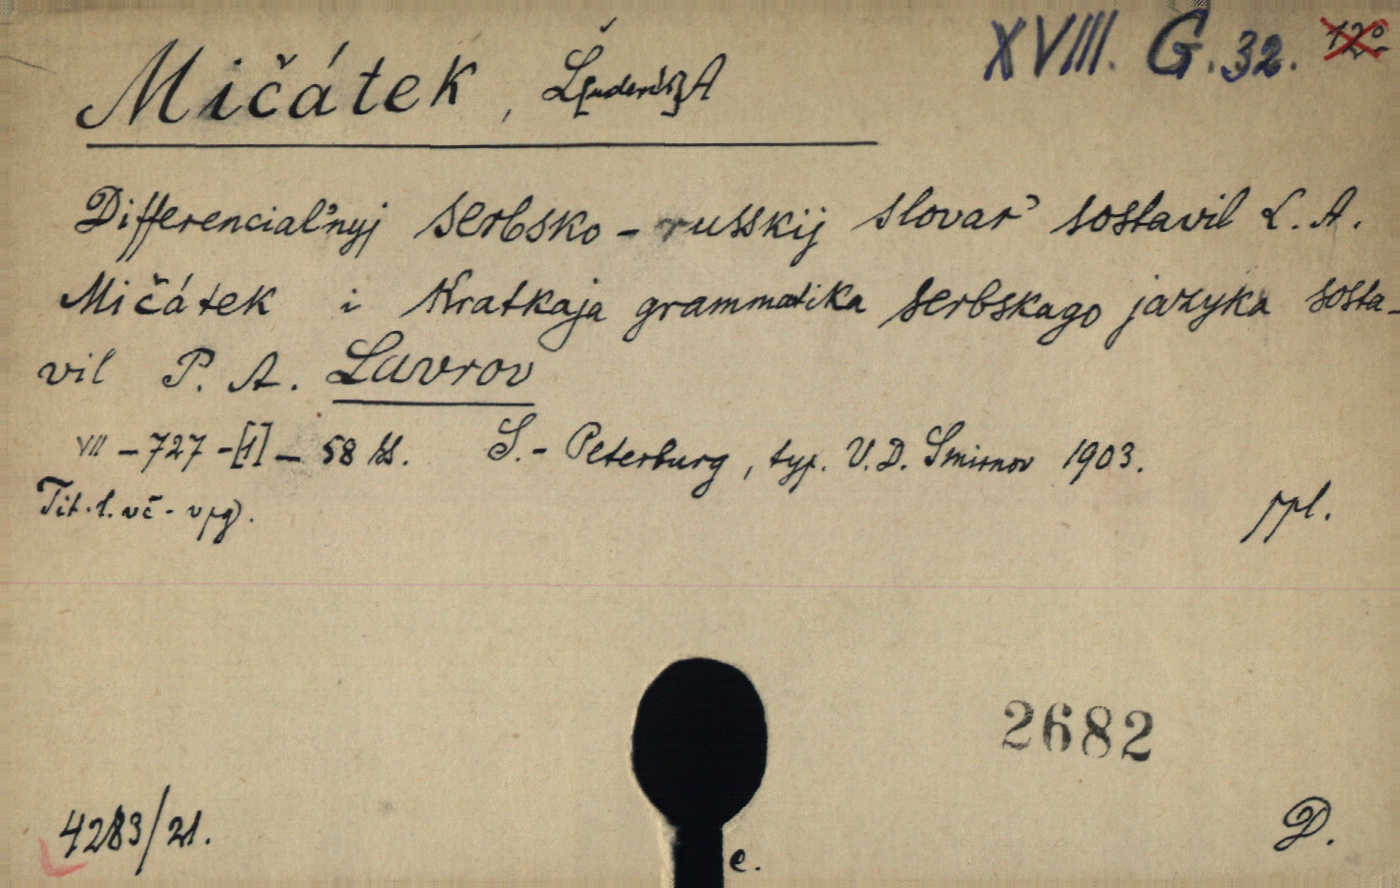 XVIII. G. 32. 12º
Mičátek, Ľ[udevít] A
Differencial'nyj serbsko-russkij slovar' sostavil L. A.
Mičátek i Kratkaja grammatika serbskago jazyka sosta-
vil P. A. Lavrov
VII - 727 - [1] - 58 ss. S.-Peterburg, typ. V. D. Smirnov 1903.
Tit. l. vč.
ppl.
2682
4283/21.
e.
D.